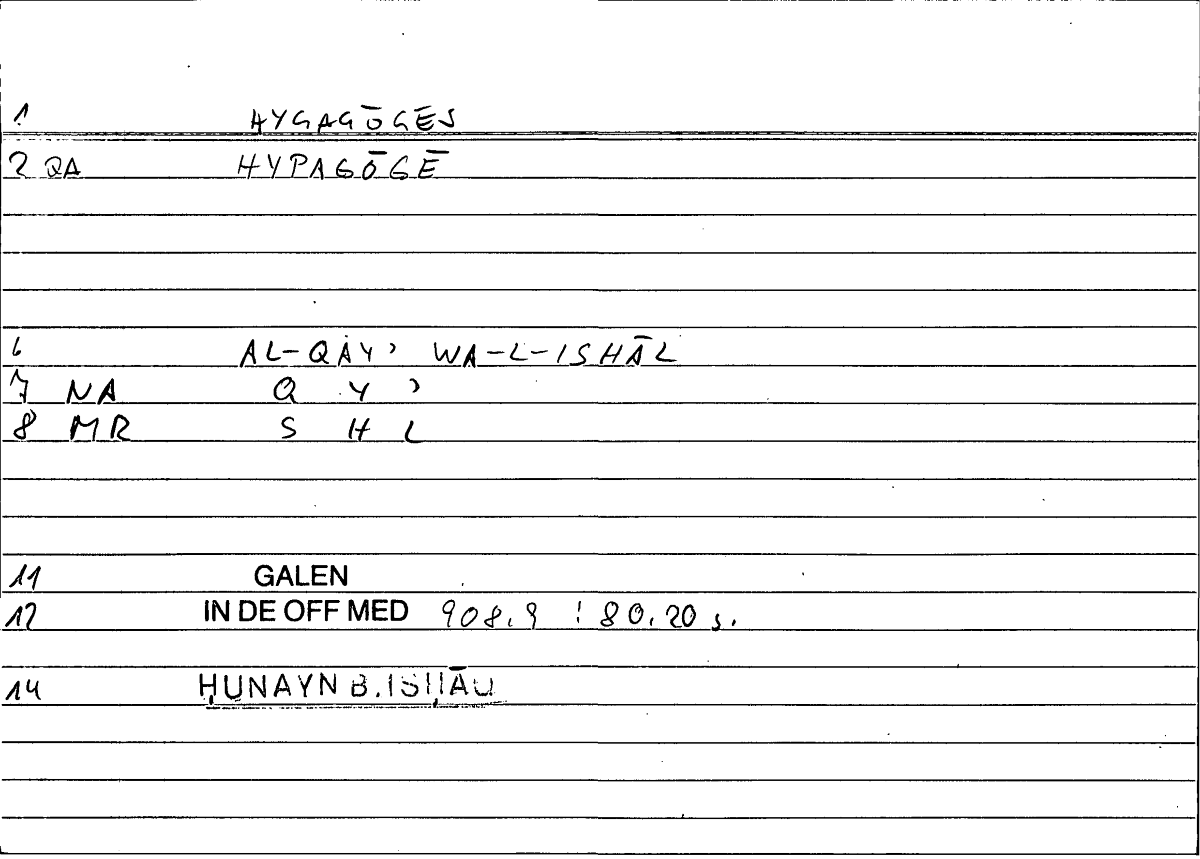 1 HYGAGŌGĒS
2 QA HYPAGŌGĒ
6 AL-QAYʾ WA-L-ISHĀL
7 NA Q Y ʾ
8 MR S H L
11 GALEN
12 IN DE OFF MED 908.9 : 80.20 s.
14 ḤUNAYN B. ISḤĀQ